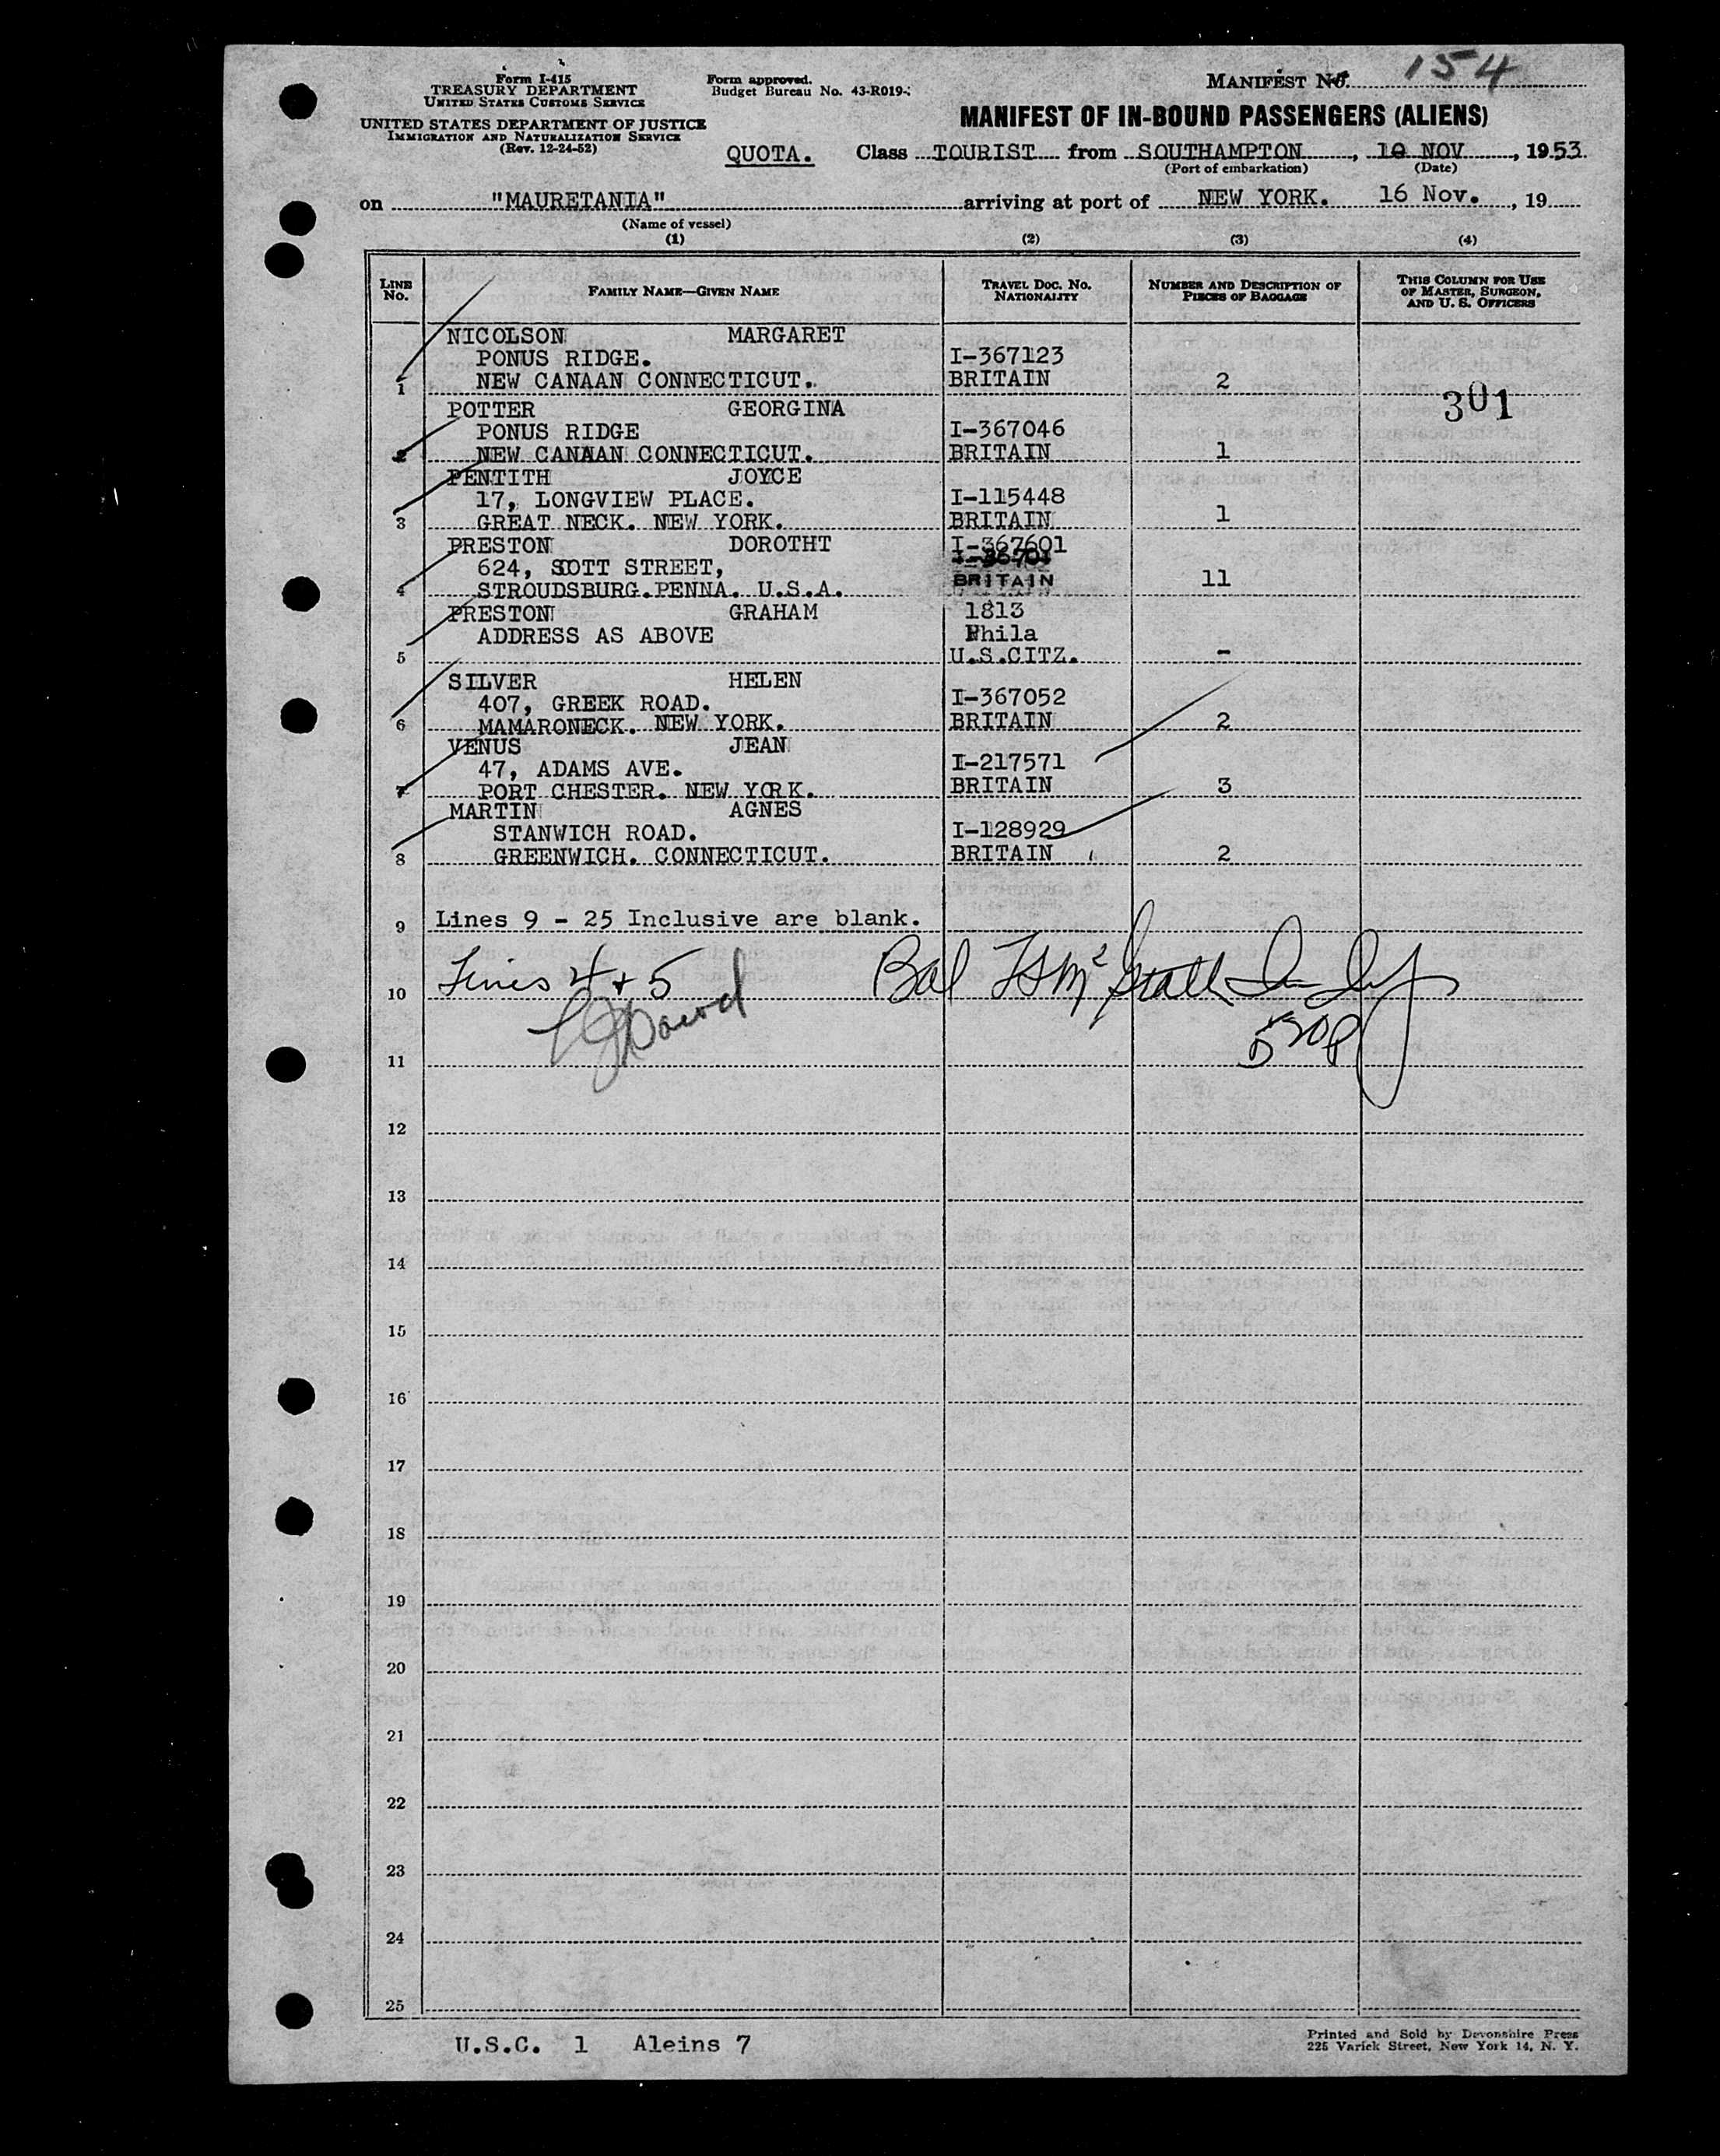 Form I-415
TREASURY DEPARTMENT
UNITED STATES CUSTOMS SERVICE
UNITED STATES DEPARTMENT OF JUSTICE
IMMIGRATION AND NATURALIZATION SERVICE
(Rev. 12-24-52)
Form approved.
Budget Bureau No. 43-R019-
MANIFEST NO. 154
MANIFEST OF IN-BOUND PASSENGERS (ALIENS)
QUOTA. Class TOURIST from SOUTHAMPTON, 10 NOV, 1953
(Port of embarkation) (Date)
on "MAURETANIA" arriving at port of NEW YORK. 16 Nov., 19
(Name of vessel)
(1) (2) (3) (4)
LINE NO. FAMILY NAME—GIVEN NAME TRAVEL DOC. NO. NATIONALITY NUMBER AND DESCRIPTION OF PIECES OF BAGGAGE THIS COLUMN FOR USE OF MASTER, SURGEON, AND U. S. OFFICERS
NICOLSON MARGARET
PONUS RIDGE. I-367123
1 NEW CANAAN CONNECTICUT. BRITAIN 2
301
POTTER GEORGINA
PONUS RIDGE I-367046
2 NEW CANAAN CONNECTICUT. BRITAIN 1
PENTITH JOYCE
17, LONGVIEW PLACE. I-115448
3 GREAT NECK. NEW YORK. BRITAIN 1
PRESTON DOROTHT I-367601
624, SOTT STREET, I-36701
4 STROUDSBURG.PENNA. U.S.A. BRITAIN 11
PRESTON GRAHAM 1813
ADDRESS AS ABOVE Phila
5 U.S.CITZ. -
SILVER HELEN
407, GREEK ROAD. I-367052
6 MAMARONECK. NEW YORK. BRITAIN 2
VENUS JEAN
47, ADAMS AVE. I-217571
7 PORT CHESTER. NEW YORK. BRITAIN 3
MARTIN AGNES
STANWICH ROAD. I-128929
8 GREENWICH. CONNECTICUT. BRITAIN 2
9 Lines 9 - 25 Inclusive are blank.
10 Lines 4 + 5 Bal
11
12
13
14
15
16
17
18
19
20
21
22
23
24
25
U.S.C. 1 Aleins 7
Printed and Sold by Devonshire Press
225 Varick Street, New York 14, N. Y.